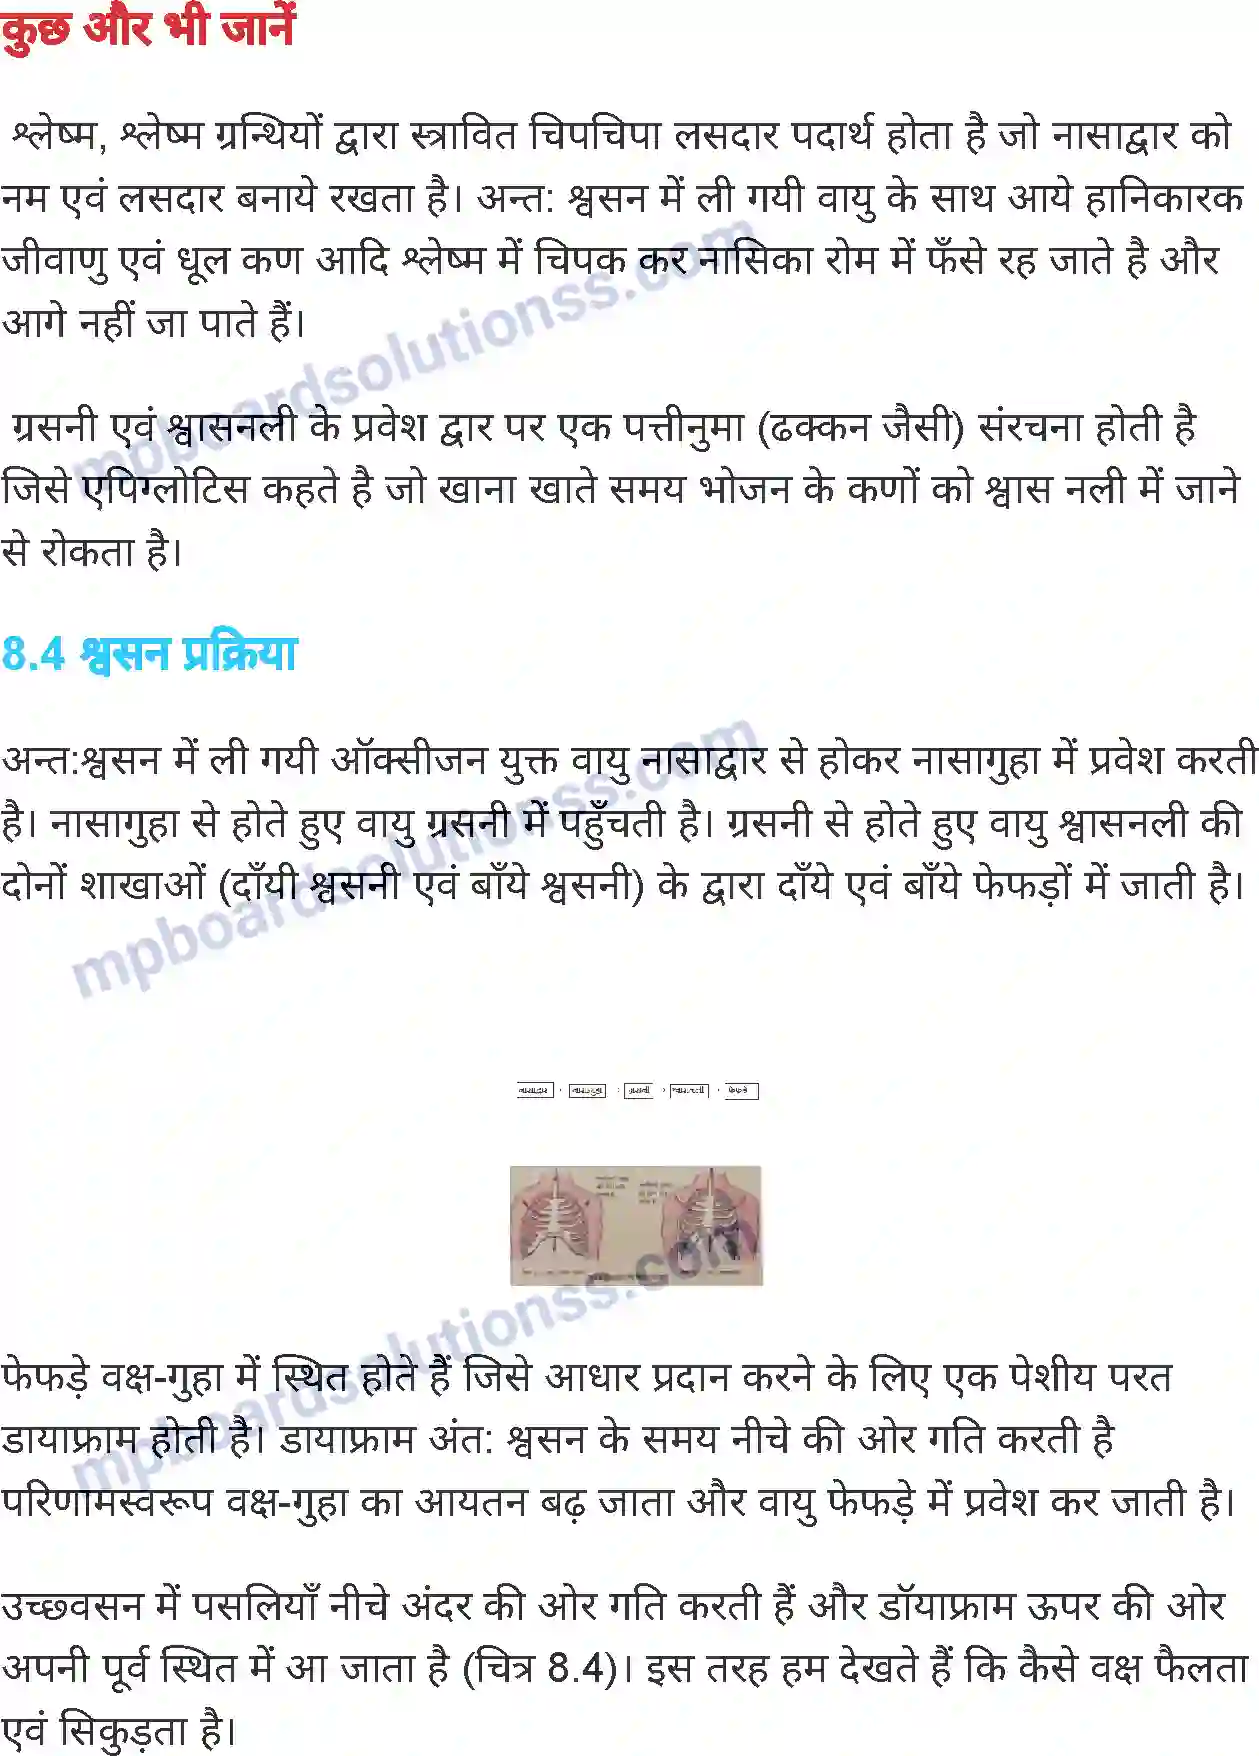 कुछ और भी जानें
श्लेष्म, श्लेष्म ग्रन्थियों द्वारा स्त्रावित चिपचिपा लसदार पदार्थ होता है जो नासाद्वार को
नम एवं लसदार बनाये रखता है। अन्त: श्वसन में ली गयी वायु के साथ आये हानिकारक
जीवाणु एवं धूल कण आदि श्लेष्म में चिपक कर नासिका रोम में फँसे रह जाते है और
आगे नहीं जा पाते हैं।
mpboardsolutionss.com
ग्रसनी एवं श्वासनली के प्रवेश द्वार पर एक पत्तीनुमा (ढक्कन जैसी) संरचना होती है
जिसे एपिग्लोटिस कहते है जो खाना खाते समय भोजन के कणों को श्वास नली में जाने
से रोकता है।
8.4 श्वसन प्रक्रिया
अन्त:श्वसन में ली गयी ऑक्सीजन युक्त वायु नासाद्वार से होकर नासागुहा में प्रवेश करती
है। नासागुहा से होते हुए वायु ग्रसनी में पहुँचती है। ग्रसनी से होते हुए वायु श्वासनली की
दोनों शाखाओं (दाँयी श्वसनी एवं बाँये श्वसनी) के द्वारा दाँये एवं बाँये फेफड़ों में जाती है।
mpboardsolutionss.com
नासाद्वार नासागुहा ग्रसनी श्वासनली फेफड़े
mpboardsolutionss.com
फेफड़े वक्ष-गुहा में स्थित होते हैं जिसे आधार प्रदान करने के लिए एक पेशीय परत
डायाफ्राम होती है। डायाफ्राम अंत: श्वसन के समय नीचे की ओर गति करती है
परिणामस्वरूप वक्ष-गुहा का आयतन बढ़ जाता और वायु फेफड़े में प्रवेश कर जाती है।
उच्छवसन में पसलियाँ नीचे अंदर की ओर गति करती हैं और डॉयाफ्राम ऊपर की ओर
अपनी पूर्व स्थित में आ जाता है (चित्र 8.4)। इस तरह हम देखते हैं कि कैसे वक्ष फैलता
एवं सिकुड़ता है।